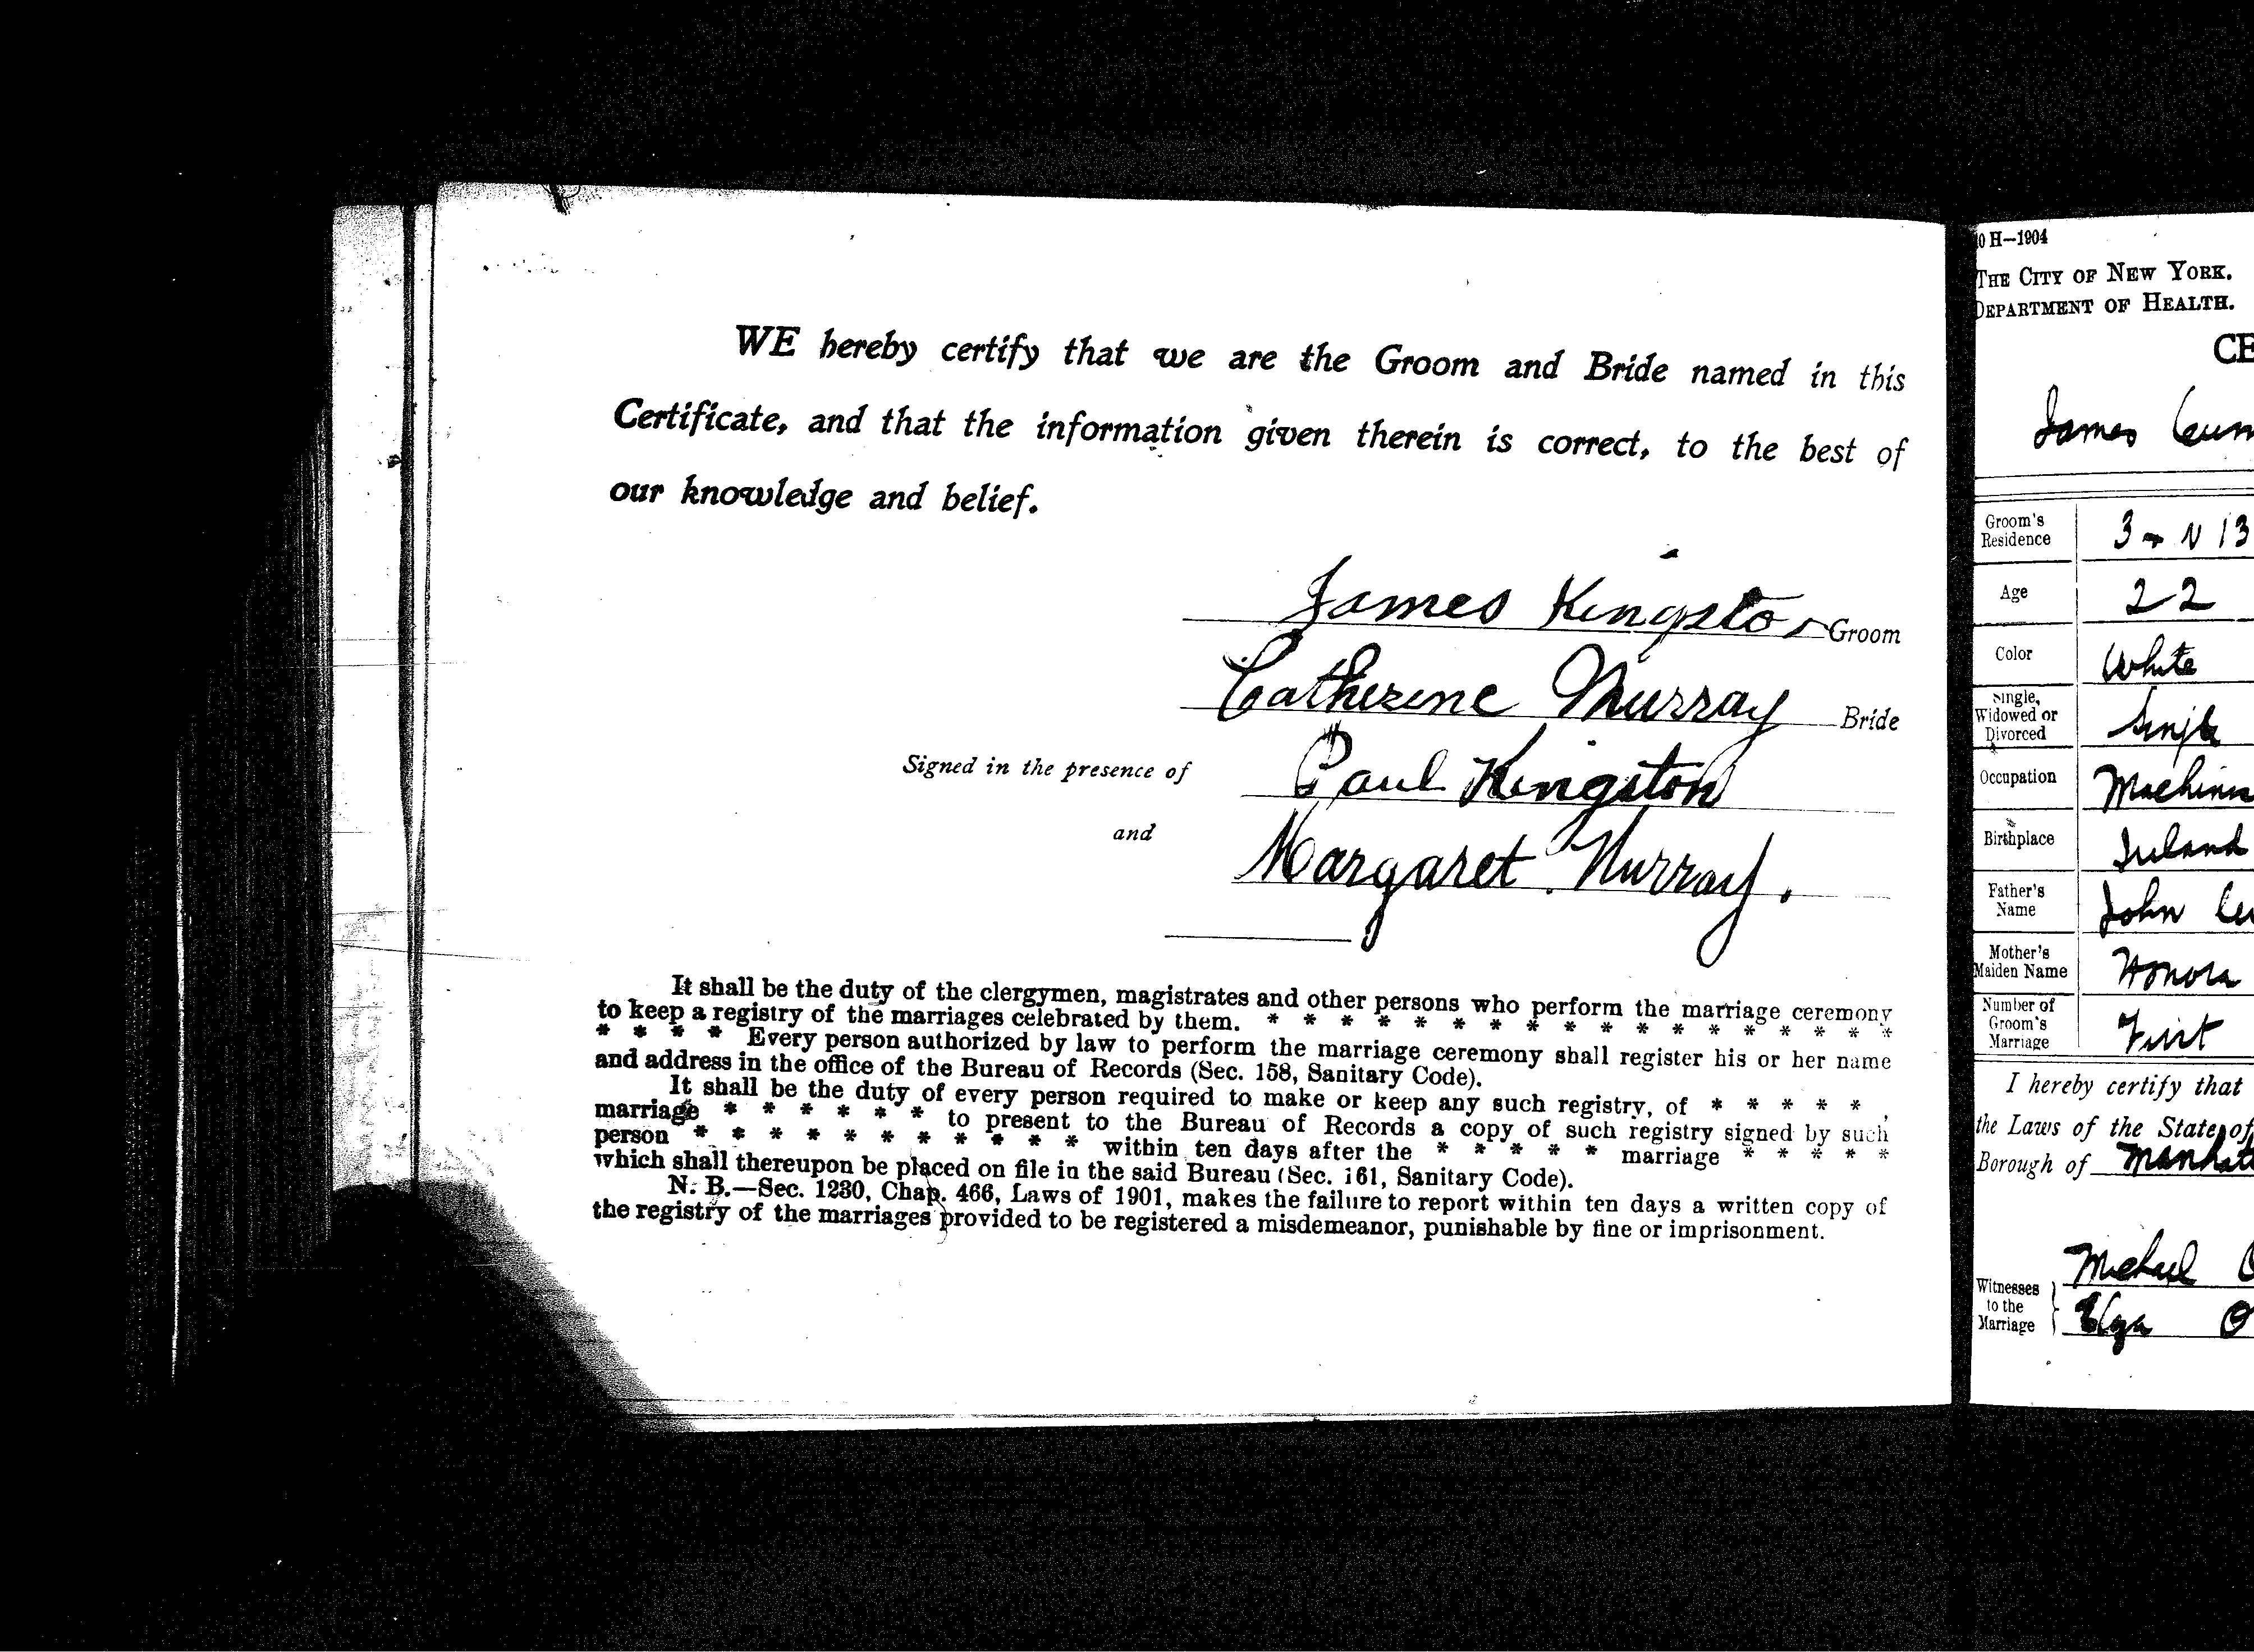 WE hereby certify that we are the Groom and Bride named in this
Certificate, and that the information given therein is correct, to the best of
our knowledge and belief.
James Kingston Groom
Catherine Murray Bride
Signed in the presence of Paul Kingston
and Margaret Murray.
It shall be the duty of the clergymen, magistrates and other persons who perform the marriage ceremony
to keep a registry of the marriages celebrated by them. * * * * * * * * * * * * * * * * * *
* * * * Every person authorized by law to perform the marriage ceremony shall register his or her name
and address in the office of the Bureau of Records (Sec. 158, Sanitary Code).
It shall be the duty of every person required to make or keep any such registry, of * * * * * ,
marriage * * * * * * to present to the Bureau of Records a copy of such registry signed by such
person * * * * * * * * * * * within ten days after the * * * * * marriage * * * * *
which shall thereupon be placed on file in the said Bureau (Sec. 161, Sanitary Code).
N. B.—Sec. 1230, Chap. 466, Laws of 1901, makes the failure to report within ten days a written copy of
the registry of the marriages provided to be registered a misdemeanor, punishable by fine or imprisonment.
0 H—1904
THE CITY OF NEW YORK.
DEPARTMENT OF HEALTH.
CE
James
Groom's Residence 3 N 13
Age 22
Color White
Single, Widowed or Divorced Single
Occupation Machinis
Birthplace Ireland
Father's Name John
Mother's Maiden Name Honora
Number of Groom's Marriage First
I hereby certify that
the Laws of the State of
Borough of Manhat
Witnesses to the Marriage Michael O
O